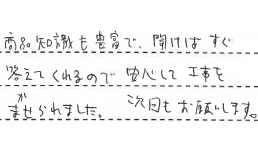 商品知識も豊富で、聞けばすぐ
答えてくれるので安心して工事を
まかせられました。次回もお願いします。